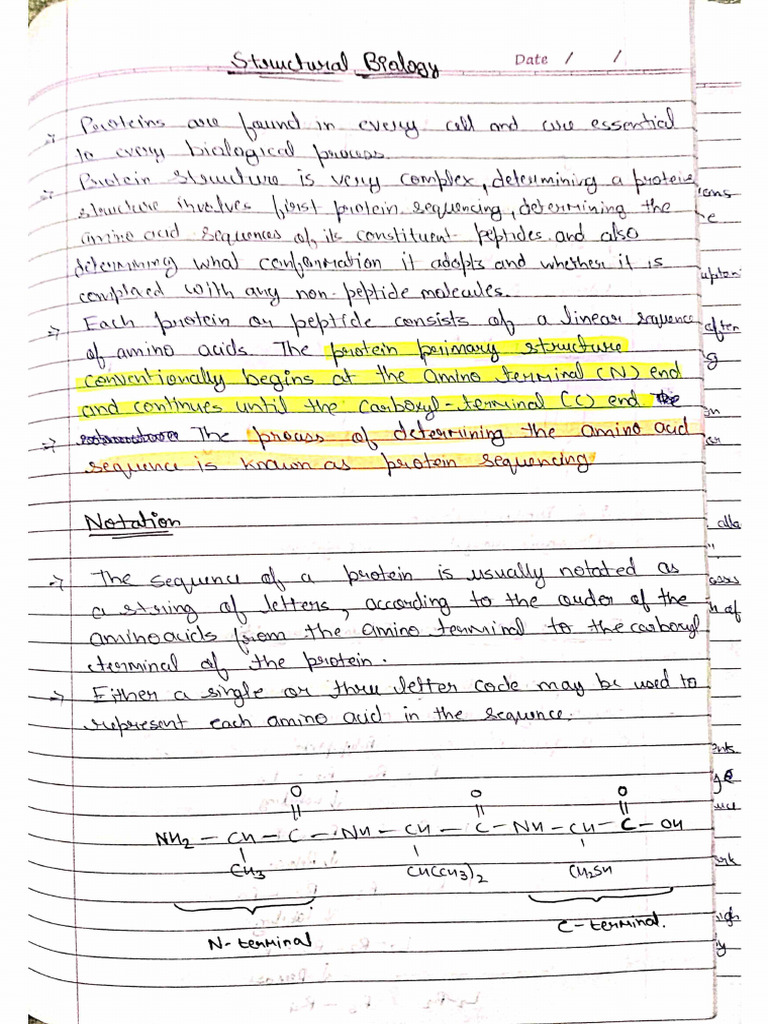 Structural Biology
Date / /
Proteins are found in every cell and are essential
to every biological process.
Protein structure is very complex, determining a protein
structure involves first protein sequencing, determining the
amino acid sequences of its constituent peptides and also
determining what conformation it adopts and whether it is
complexed with any non-peptide molecules.
Each protein or peptide consists of a linear sequence
of amino acids. The protein primary structure
conventionally begins at the amino terminal (N) end
and continues until the carboxyl-terminal (C) end
The process of determining the amino acid
sequence is known as protein sequencing
Notation
The sequence of a protein is usually notated as
a string of letters, according to the order of the
aminoacids from the amino terminal to the carboxyl
terminal of the protein.
Either a single or three letter code may be used to
represent each amino acid in the sequence.
O O O
NH2 – CH – C – NH – CH – C – NH – CH – C – OH
CH3 CH(CH3)2 CH2SH
N-terminal
C-terminal.